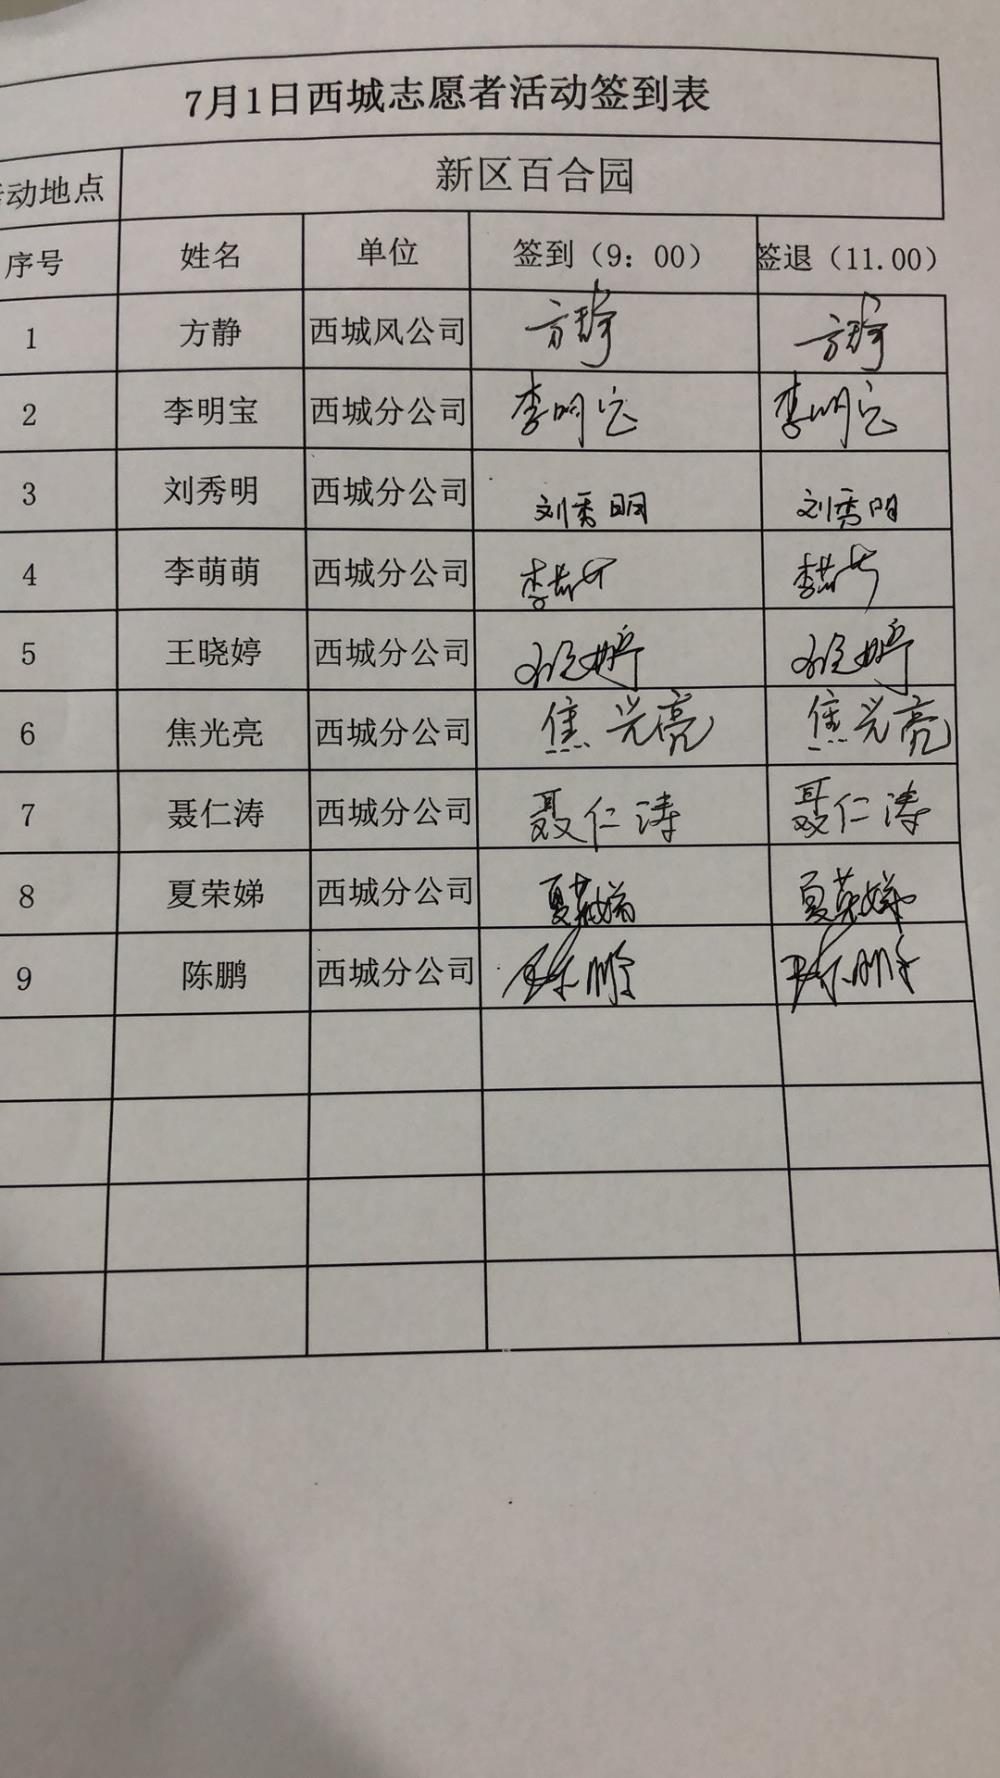 7月1日西城志愿者活动签到表
动地点 新区百合园
序号 姓名 单位 签到（9：00） 签退（11.00）
1 方静 西城风公司 方静 方静
2 李明宝 西城分公司 李明宝 李明宝
3 刘秀明 西城分公司 刘秀明 刘秀明
4 李萌萌 西城分公司 李萌萌 李萌萌
5 王晓婷 西城分公司 王晓婷 王晓婷
6 焦光亮 西城分公司 焦光亮 焦光亮
7 聂仁涛 西城分公司 聂仁涛 聂仁涛
8 夏荣娣 西城分公司 夏荣娣 夏荣娣
9 陈鹏 西城分公司 陈鹏 陈鹏